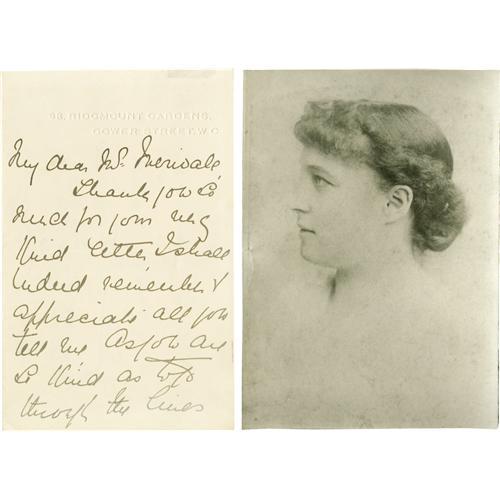 93, RIDGMOUNT GARDENS,
GOWER STREET. W.C.
My dear Mr. Merivale
Thank you so
much for your very
kind letter I shall
indeed remember &
appreciate all you
tell me As you are
so kind as to go
through the lines